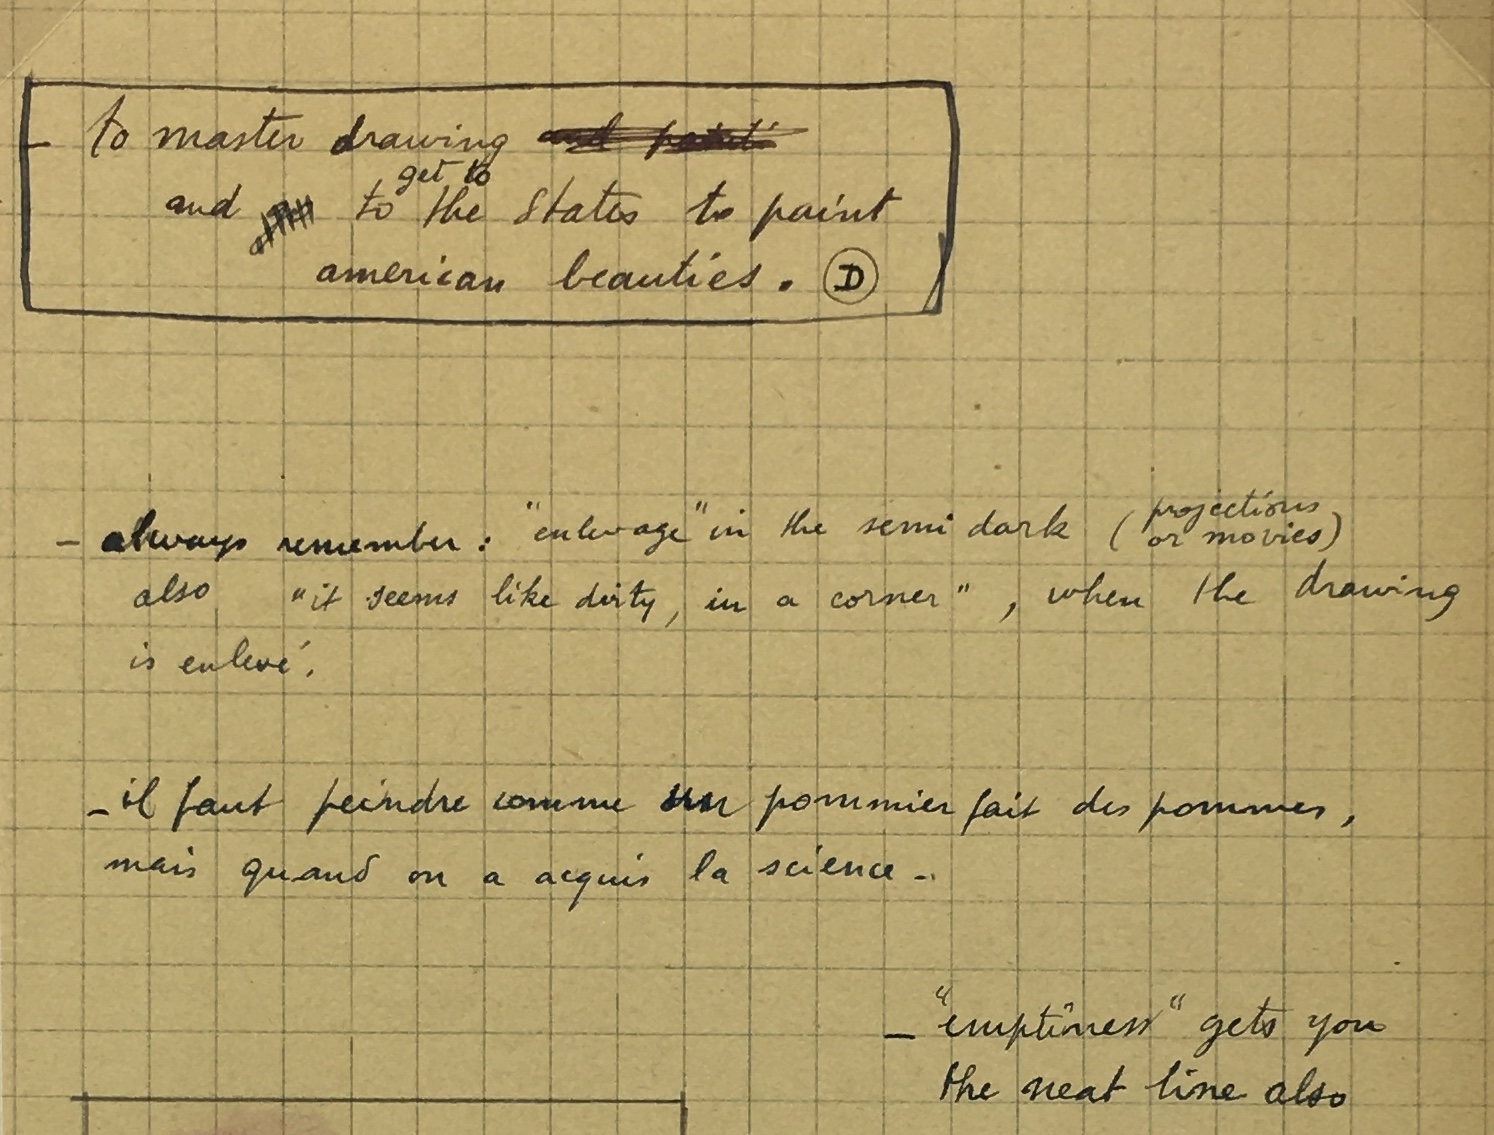 - to master drawing
get to
and to the States to paint
american beauties. D
projections
- always remember: "enlevage" in the semi dark ( or movies)
also "it seems like dirty, in a corner", when the drawing
is enlevé.
- il faut peindre comme un pommier fait des pommes,
mais quand on a acquis la science -.
- "emptiness" gets you
the neat line also